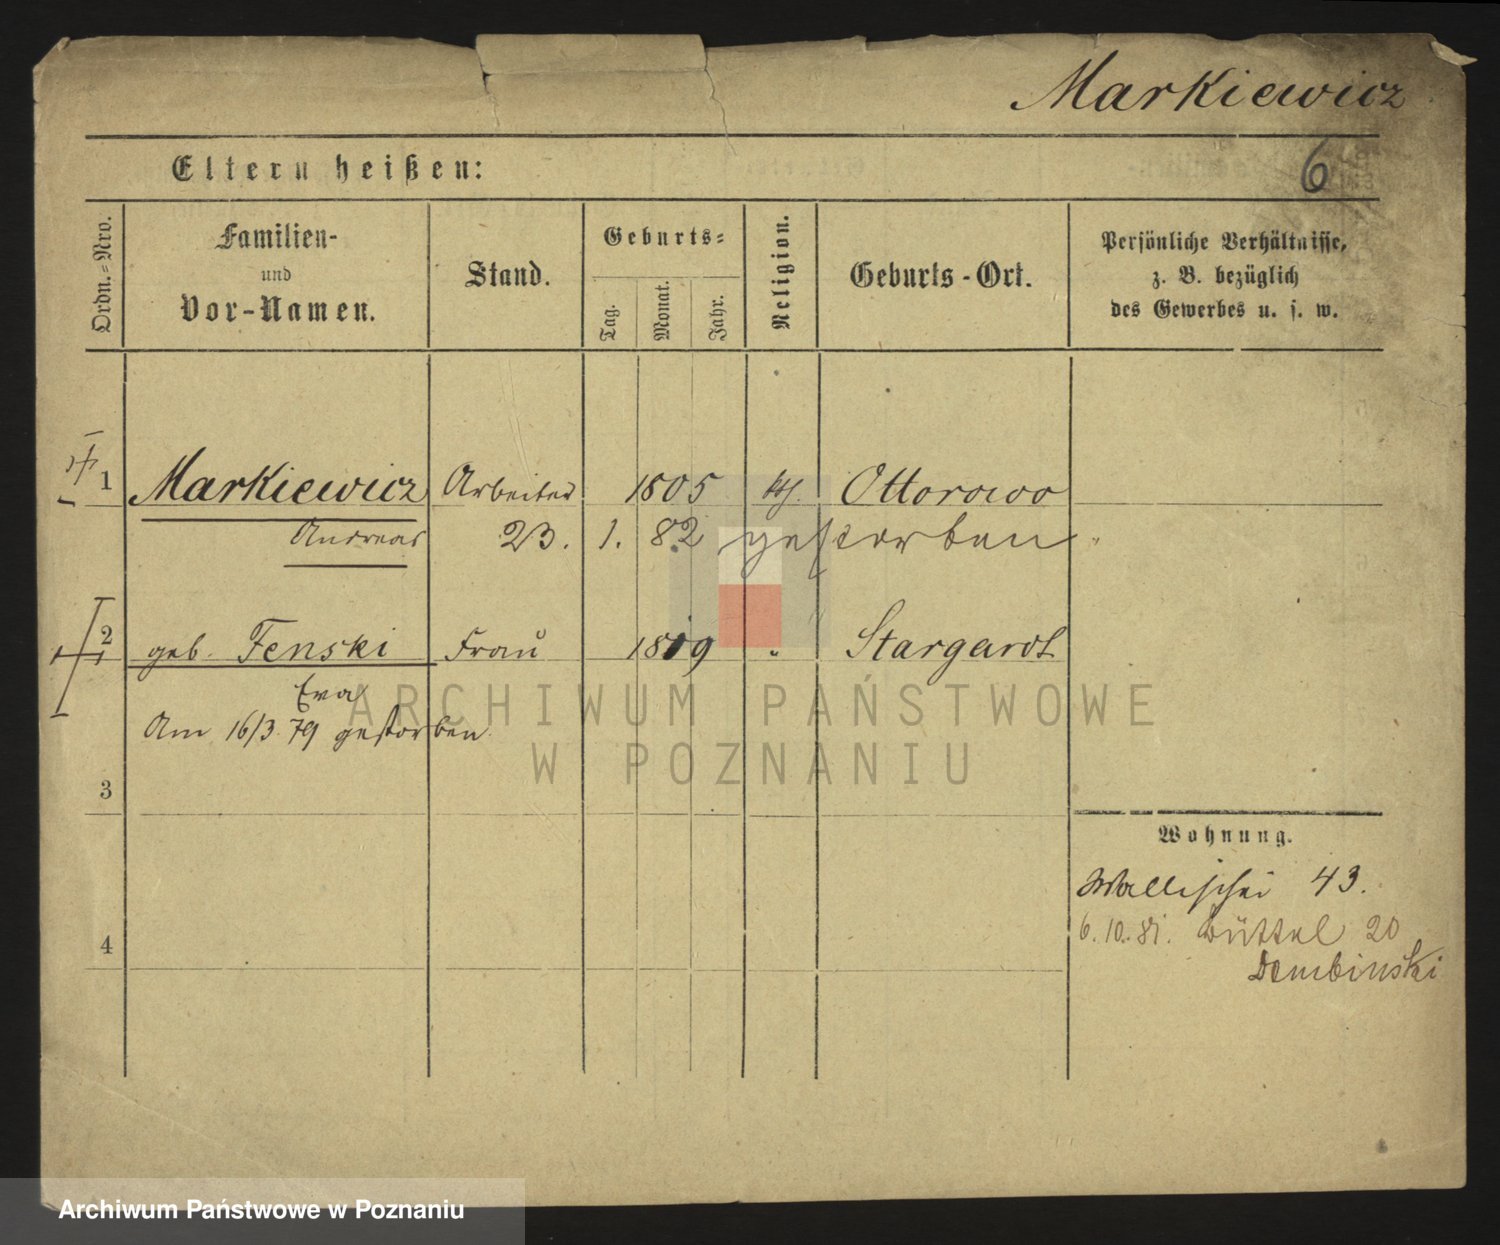 Markiewicz
6
Eltern heißen:
Ordn.-Nro.
Familien-
und
Vor-Namen.
Stand.
Geburts-
Tag.
Monat.
Jahr.
Religion.
Geburts-Ort.
Persönliche Verhältnisse,
z. B. bezüglich
des Gewerbes u. s. w.
1 Markiewicz Arbeiter 1805 kth. Ottorowo
Andreas 23. 1. 82 gestorben
2 geb. Fenski Frau 1819 " Stargardt
Eva
Am 16/3 79 gestorben
3
Wohnung.
Wallischei 43.
4
6. 10. 81. Büttel 20
Dembinski
ARCHIWUM PAŃSTWOWE
W POZNANIU
Archiwum Państwowe w Poznaniu